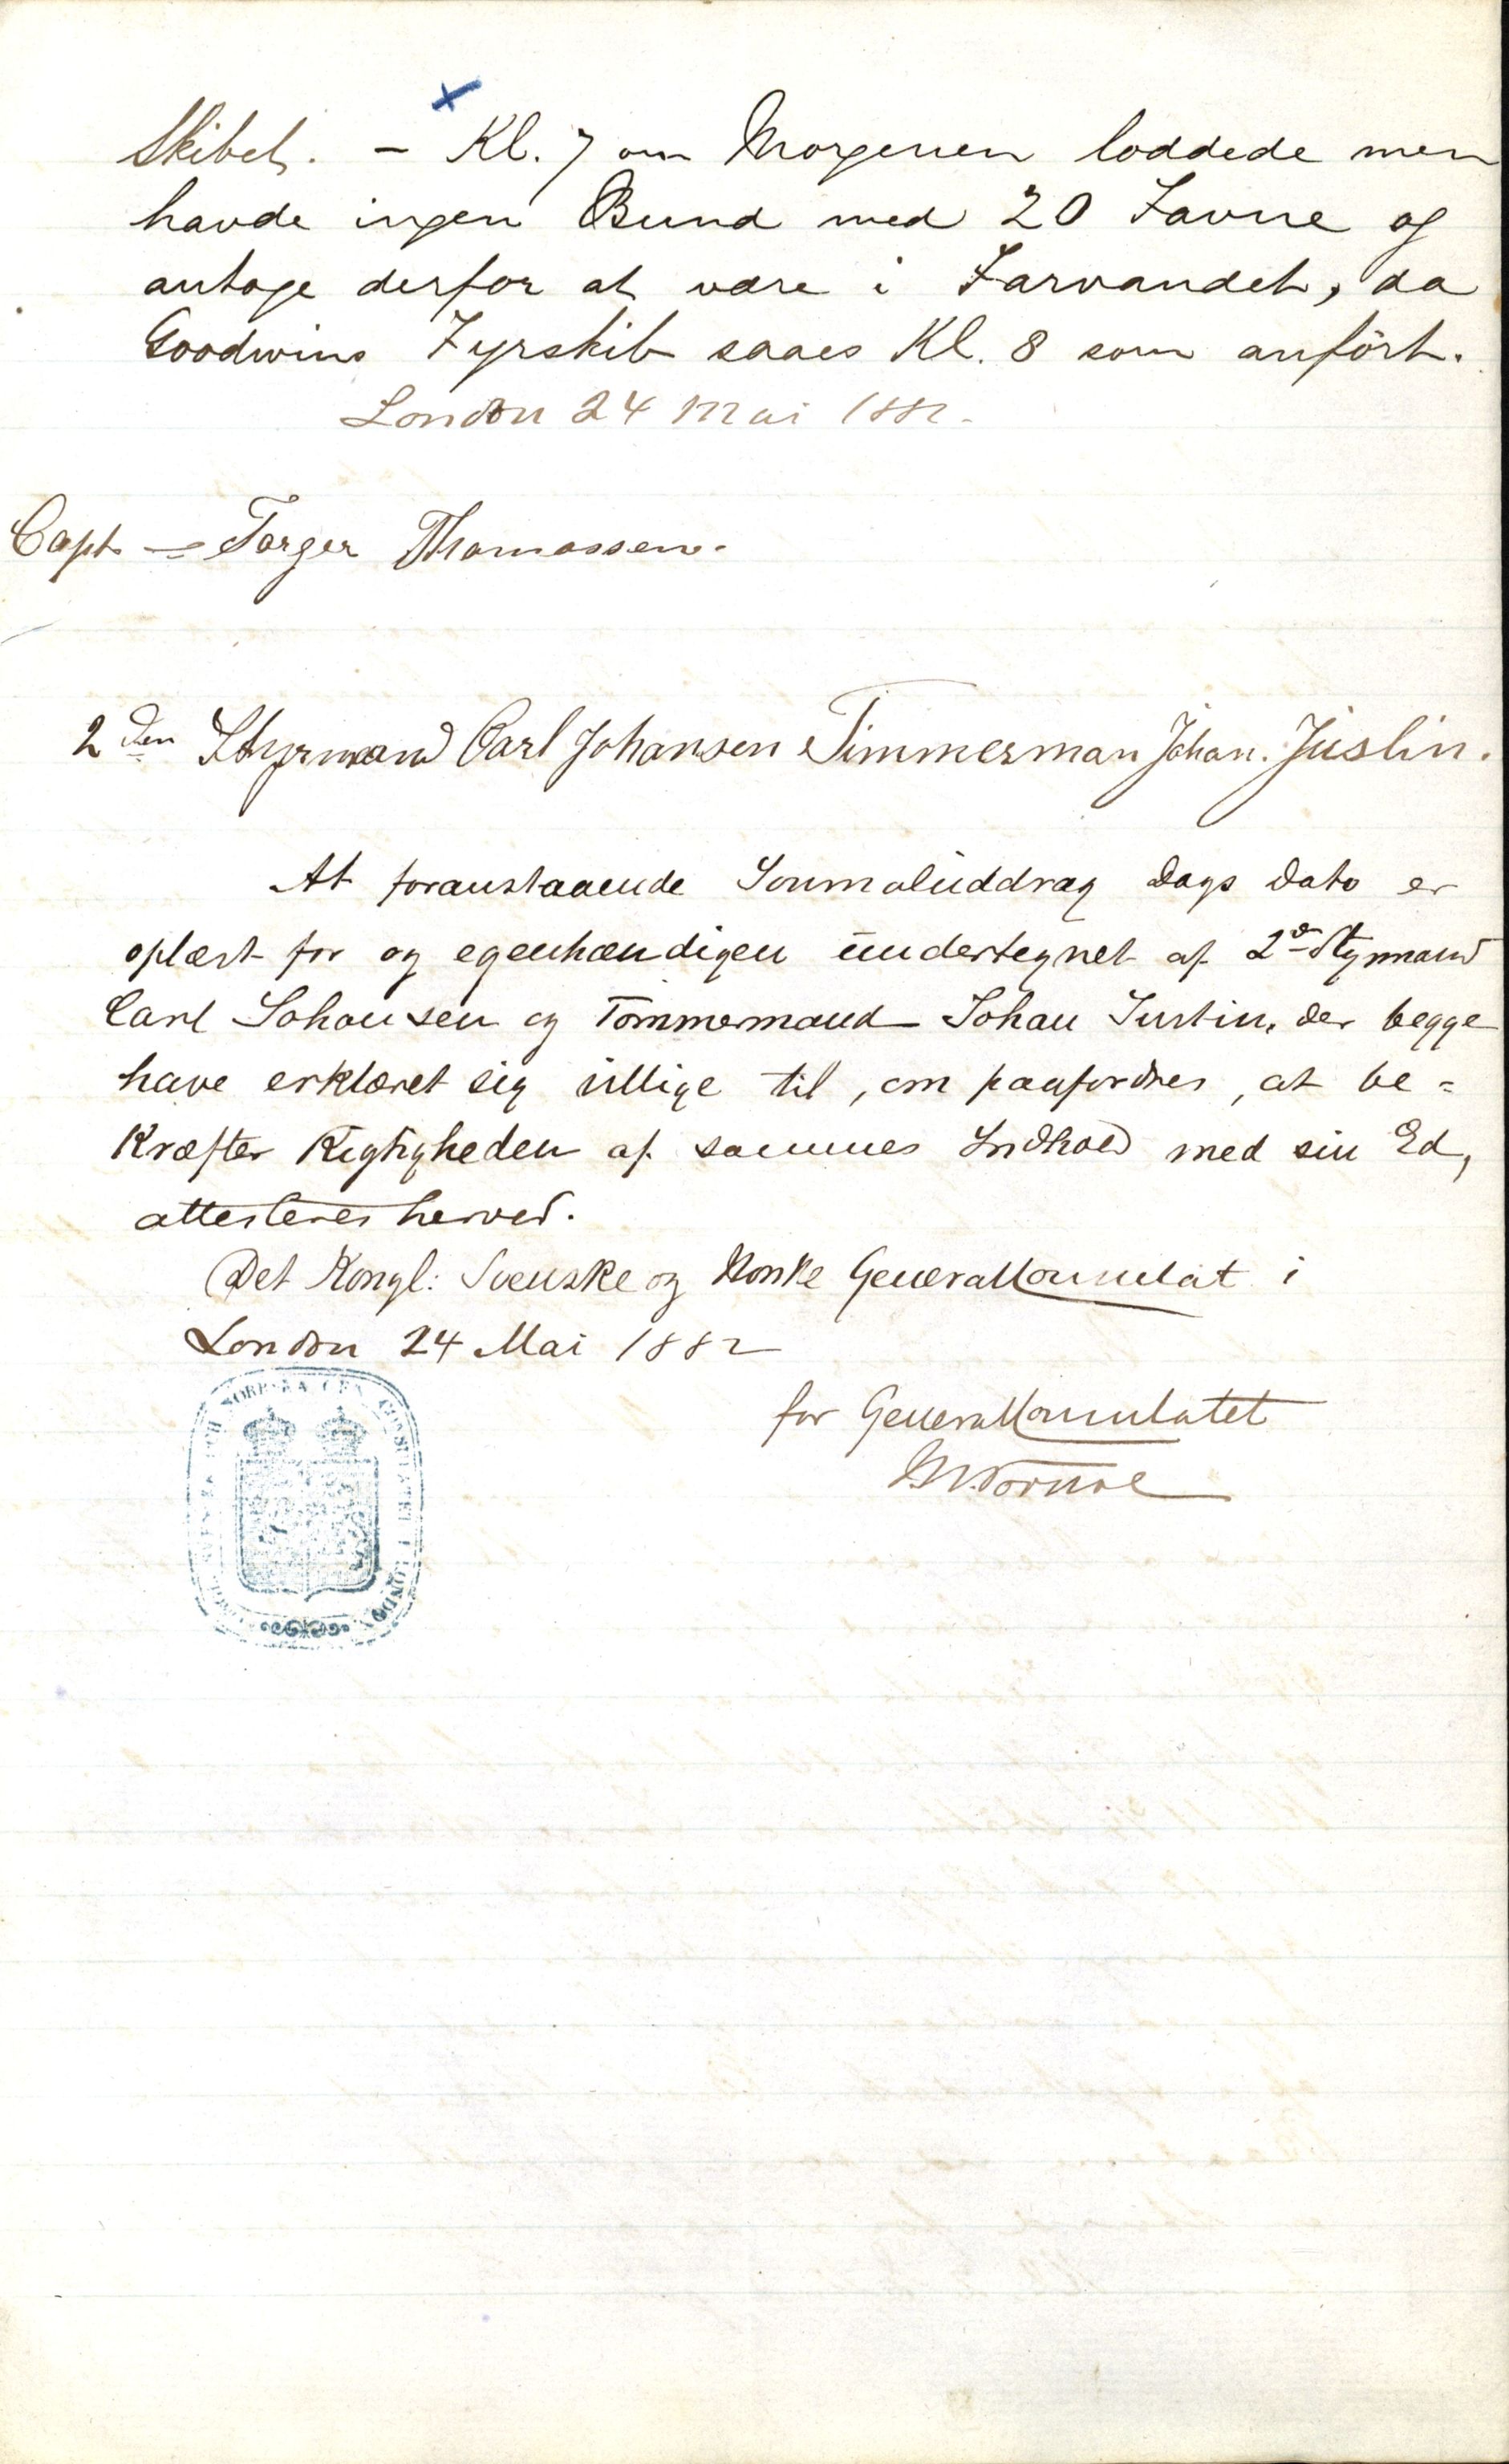 Skibet. – Kl. 7 om Morgenen loddede men
havde ingen Bund med 20 Favne og
antoge derfor at være i Farvandet, da
Goodwins Fyrskib saaes Kl. 8 som anført.
London 24 Mai 1882.
Capt Torger Thomassen.
2den Styrmand Carl Johansen Timmerman Johan. Juslin.
At foranstaaende Journaluddrag Dags Dato er
oplæst for og egenhændigen undertegnet af 2de Styrmand
Carl Johansen og Tømmermand Johan Justin, der begge
have erklæret sig villige til, om paafordres, at be=
kræfter Rigtigheden af sammes Indhold med sin Ed,
attesteres herved.
Det Kongl: Svenske og Norske Generalkonsulat i
London 24 Mai 1882
for Generalkonsulatet
OCH NORRSKA GEN. CONSULATET I LONDON